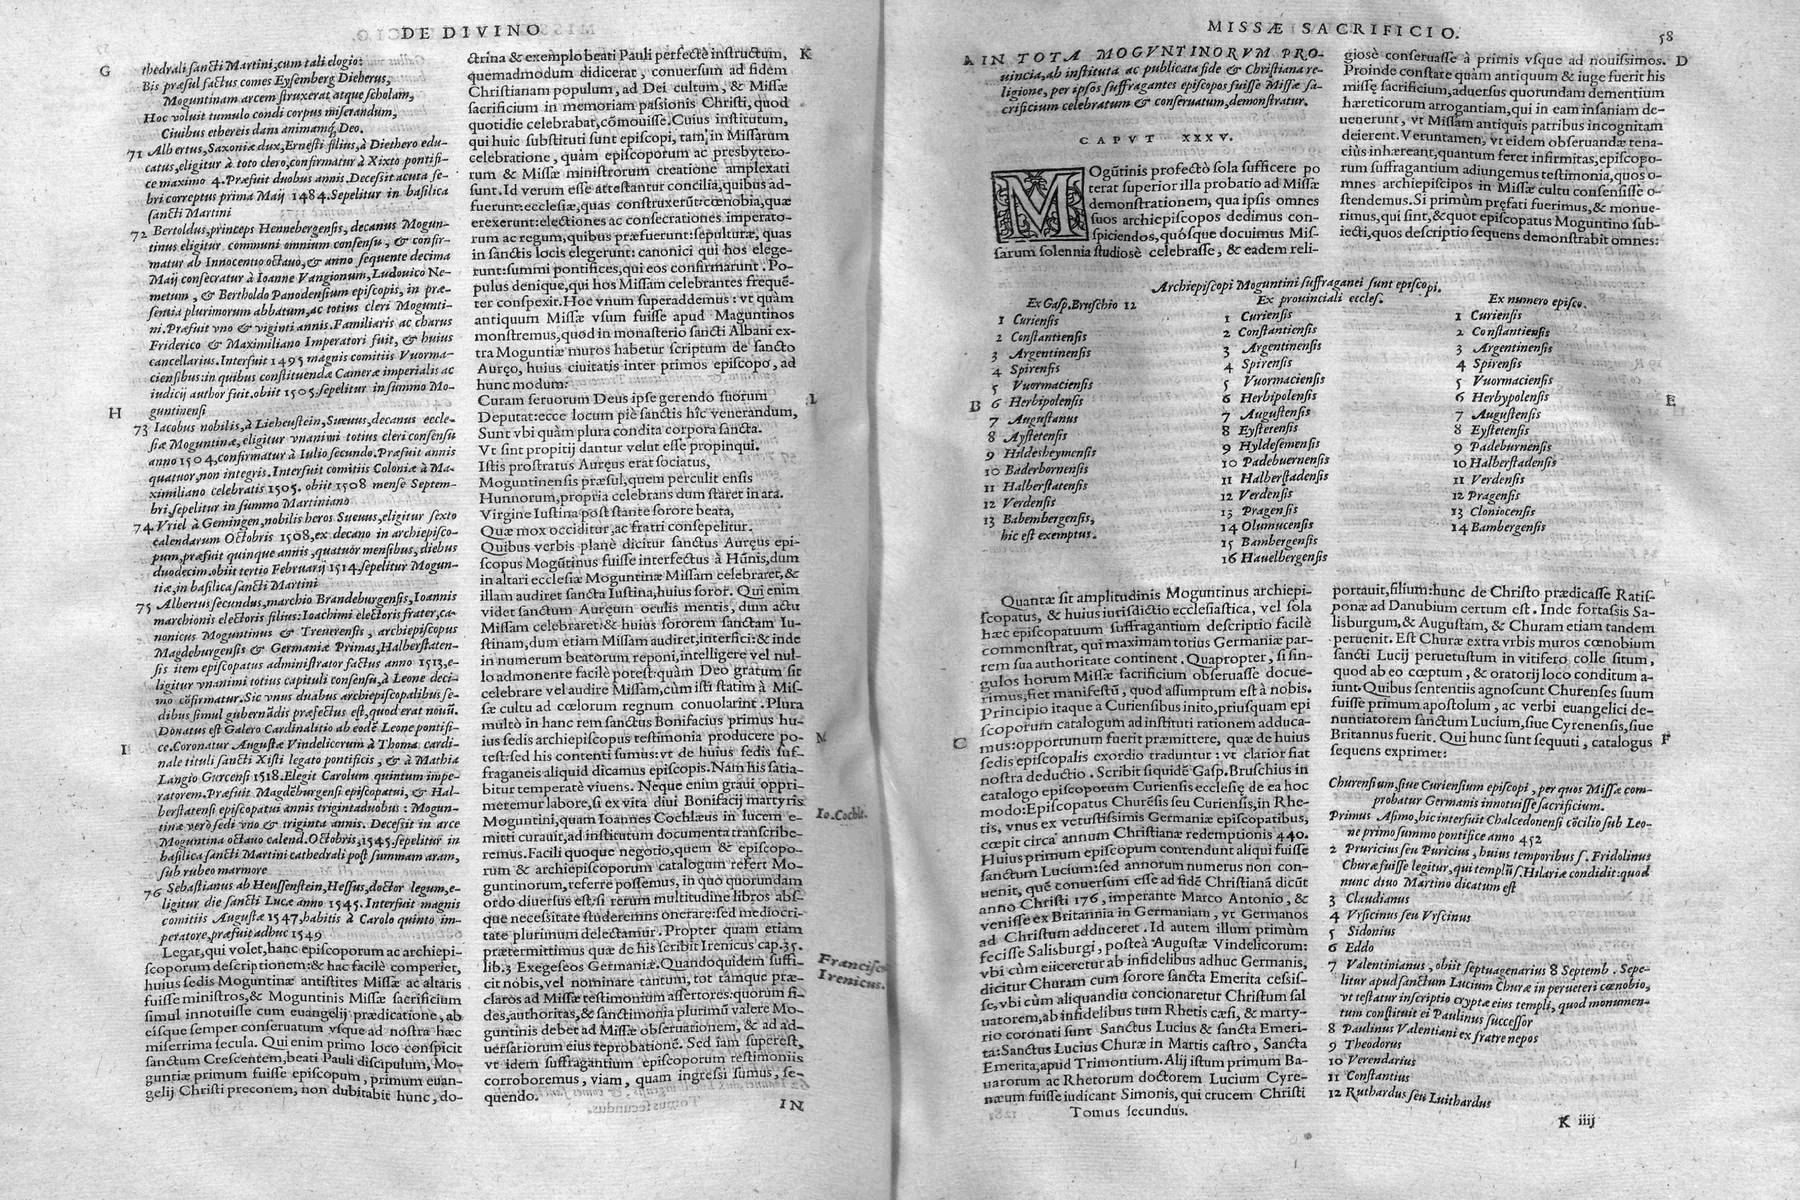 DE DIVINO
G
thedrali sancti Martini, cum tali elogio:
Bis præsul factus comes Eysemberg Dieherus,
Moguntinam arcem struxerat atque scholam,
Hoc voluit tumulo condi corpus miserandum,
Ciuibus ethereis dans animamq́; Deo.
71 Albertus, Saxoniæ dux, Ernesti filius, à Diethero edu-
catus, eligitur à toto clero, confirmatur à Xixto pontifi-
ce maximo 4. Præfuit duobus annis. Decessit acuta fe-
bri correptus prima Maij 1484. Sepelitur in basilica
sancti Martini
72 Bertoldus, princeps Hennebergensis, decanus Mogun-
tinus eligitur communi omnium consensu, & confir-
matur ab Innocentio octauo, & anno sequente decima
Maij consecratur à Ioanne Vangionum, Ludouico Ne-
metum, & Bertholdo Panodensium episcopis, in præ-
sentia plurimorum abbatum, ac totius cleri Mogunti-
ni. Præfuit vno & viginti annis. Familiaris ac charus
Friderico & Maximiliano Imperatori fuit, & huius
cancellarius. Interfuit 1495 magnis comitiis Vuorma-
ciensibus: in quibus constituendæ Cameræ imperialis ac
iudicij author fuit. obiit 1505. sepelitur in summo Mo-
guntinensi
H
73 Iacobus nobilis, à Liebenstein, Sueuus, decanus eccle-
siæ Moguntinæ, eligitur vnanimi totius cleri consensu
anno 1504, confirmatur à Iulio secundo. Præfuit annis
quatuor, non integris. Interfuit comitiis Coloniæ à Ma-
ximiliano celebratis 1505. obiit 1508 mense Septem-
bri, sepelitur in summo Martiniano
74 Vriel à Gemingen, nobilis heros Sueuus, eligitur sexto
calendarum Octobris 1508, ex decano in archiepisco-
pum, præfuit quinque annis, quatuór mensibus, diebus
duodecim. obiit tertio Februarij 1514. sepelitur Mogun-
tiæ, in basilica sancti Martini
75 Albertus secundus, marchio Brandeburgensis, Ioannis
marchionis electoris filius: Ioachimi electoris frater, ca-
nonicus Moguntinus & Treuerensis, archiepiscopus
Magdeburgensis & Germaniæ Primas, Halberstaten-
sis item episcopatus administrator factus anno 1513, e-
ligitur vnanimi totius capituli consensu, à Leone deci-
mo cōfirmatur. Sic vnus duabus archiepiscopalibus se-
dibus simul gubernādis præfectus est, quod erat nouū.
Donatus est Galero Cardinalitio ab eodē Leone pontifi-
I
ce. Coronatur Augustæ Vindelicorum à Thoma cardi-
nale tituli sancti Xisti legato pontificis, & à Mathia
Langio Gurcensi 1518. Elegit Carolum quintum impe-
ratorem. Præfuit Magdeburgensi episcopatui, & Hal-
berstatensi episcopatui annis trigintaduobus: Mogun-
tinæ verò sedi vno & triginta annis. Decessit in arce
Moguntina octauo calend. Octobris, 1545. sepelitur in
basilica sancti Martini cathedrali post summam aram,
sub rubeo marmore
76 Sebastianus ab Heussenstein, Hessus, doctor legum, e-
ligitur die sancti Lucæ anno 1545. Interfuit magnis
comitiis Augustæ 1547, habitis à Carolo quinto im-
peratore, præfuit adhuc 1549
Legat, qui volet, hanc episcoporum ac archiepi-
scoporum descriptionem: & hac facilè comperiet,
huius sedis Moguntinæ antistites Missæ ac altaris
fuisse ministros, & Moguntinis Missæ sacrificium
simul innotuisse cum euangelij prædicatione, ab
eisque semper conseruatum vsque ad nostra hæc
miserrima secula. Qui enim primo loco conspicit
sanctum Crescentem, beati Pauli discipulum, Mo-
guntiæ primum fuisse episcopum, primum euan-
gelij Christi preconem, non dubitabit hunc, do-
ctrina & exemplo beati Pauli perfectè instructum,
K
quemadmodum didicerat, conuersum ad fidem
Christianam populum, ad Dei cultum, & Missæ
sacrificium in memoriam passionis Christi, quod
quotidie celebrabat, cōmouisse. Cuius institutum,
qui huic substituti sunt episcopi, tam in Missarum
celebratione, quàm episcoporum ac presbytero-
rum & Missæ ministrorum creatione amplexati
sunt. Id verum esse attestantur concilia, quibus ad-
fuerunt: ecclesiæ, quas construxerūt: cœnobia, quæ
erexerunt: electiones ac consecrationes imperato-
rum ac regum, quibus præfuerunt: sepulturæ, quas
in sanctis locis elegerunt: canonici qui hos elege-
runt: summi pontifices, qui eos confirmarunt. Po-
pulus denique, qui hos Missam celebrantes frequē-
ter conspexit. Hoc vnum superaddemus: vt quàm
antiquum Missæ vsum fuisse apud Maguntinos
monstremus, quod in monasterio sancti Albani ex-
tra Moguntiæ muros habetur scriptum de sancto
Aurẹo, huius ciuitatis inter primos episcopo, ad
hunc modum:
Curam seruorum Deus ipse gerendo suorum
L
Deputat: ecce locum piè sanctis hîc venerandum,
Sunt vbi quàm plura condita corpora sancta.
Vt sint propitij dantur velut esse propinqui.
Istis prostratus Aurẹus erat sociatus,
Moguntinensis præsul, quem perculit ensis
Hunnorum, propria celebrans dum staret in ara.
Virgine Iustina post stante sorore beata,
Quæ mox occiditur, ac fratri consepelitur.
Quibus verbis planè dicitur sanctus Aurẹus epi-
scopus Mogutinus fuisse interfectus à Hūnis, dum
in altari ecclesiæ Moguntinæ Missam celebraret, &
illam audiret sancta Iustina, huius soror. Qui enim
videt sanctum Aurẹum oculis mentis, dum actu
Missam celebraret: & huius sororem sanctam Iu-
stinam, dum etiam Missam audiret, interfici: & inde
in numerum beatorum reponi, intelligere vel nul-
lo admonente facilè potest: quàm Deo gratum sit
celebrare vel audire Missam, cùm isti statim à Mis-
sæ cultu ad cœlorum regnum conuolarint. Plura
multò in hanc rem sanctus Bonifacius primus hu-
ius sedis archiepiscopus testimonia producere po-
M
test: sed his contenti sumus: vt de huius sedis suf-
fraganeis aliquid dicamus episcopis. Nam his satia-
bitur temperatè viuens. Neque enim graui oppri-
meremur labore, si ex vita diui Bonifacij martyris
Moguntini, quam Ioannes Cochlæus in lucem e-
Io. Cochlæ.
mitti curauit, ad institutum documenta transcribe-
remus. Facili quoque negotio, quem & episcopo-
rum & archiepiscoporum catalogum refert Mo-
guntinorum, referre possemus, in quo quorundam
ordo diuersus est, si rerum multitudine libros abs-
que necessitate studeremus onerare: sed mediocri-
tate plurimum delectamur. Propter quam etiam
prætermittimus quæ de his scribit Irenicus cap. 35.
lib. 3 Exegeseos Germaniæ. Quandoquidem suffi-
Francisc.
Irenicus.
cit nobis, vel nominare tantum, tot tàmque præ-
claros ad Missæ testimonium assertores: quorum fi-
des, authoritas, & sanctimonia plurimū valere Mo-
guntinis debet ad Missæ obseruationem, & ad ad-
uersatiorum eius reprobationē. Sed iam superest,
vt idem suffragantium episcoporum testimoniis
corroboremus, viam, quam ingressi sumus, se-
quendo.
IN
MISSÆ SACRIFICIO.
58
A
IN TOTA MOGVNTINORVM PRO-
uincia, ab instituta ac publicata fide & Christiana re-
ligione, per ipsos suffragantes episcopos fuisse Missæ sa-
crificium celebratum & conseruatum, demonstratur.
CAPVT XXXV.
MOgūtinis profectò sola sufficere po
terat superior illa probatio ad Missæ
demonstrationem, qua ipsis omnes
suos archiepiscopos dedimus con-
spiciendos, quósque docuimus Mis-
sarum solennia studiosè celebrasse, & eadem reli-
giosè conseruasse à primis vsque ad nouissimos.
D
Proinde constate quàm antiquum & iuge fuerit his
missẹ sacrificium, aduersus quorundam dementium
hæreticorum arrogantiam, qui in eam insaniam de-
uenerunt, vt Missam antiquis patribus incognitam
deierent. Veruntamen, vt eidem obseruandæ tena-
ciùs inhæreant, quantum feret infirmitas, episcopo-
rum suffragantium adiungemus testimonia, quos o-
mnes archiepiscipos in Missæ cultu consensisse o-
stendemus. Si primùm pręfati fuerimus, & monue-
rimus, qui sint, & quot episcopatus Moguntino sub-
iecti, quos descriptio sequens demonstrabit omnes:
Archiepiscopi Moguntini suffraganei sunt episcopi.
Ex Gasp. Bruschio 12
1 Curiensis
2 Constantiensis
3 Argentinensis
4 Spirensis
5 Vuormaciensis
B
6 Herbipolensis
7 Augustanus
8 Aystetensis
9 Hildesheymensis
10 Baderbornensis
11 Halberstatensis
12 Verdensis
13 Babembergensis,
hic est exemptus.
Ex prouinciali eccles.
1 Curiensis
2 Constantiensis
3 Argentinensis
4 Spirensis
5 Vuormaciensis
6 Herbipolensis
7 Augustensis
8 Eysterensis
9 Hyldesemensis
10 Padebuernensis
11 Halberstadensis
12 Verdensis
13 Pragensis
14 Olumucensis
15 Bambergensis
16 Hauelbergensis
Ex numero episco.
1 Curiensis
2 Constantiensis
3 Argentinensis
4 Spirensis
5 Vuormaciensis
6 Herbypolensis
E
7 Augustensis
8 Eystetensis
9 Padeburnensis
10 Halberstadensis
11 Verdensis
12 Pragensis
13 Cloniocensis
14 Bambergensis
Quantæ sit amplitudinis Moguntinus archiepi-
scopatus, & huius iurisdictio ecclesiastica, vel sola
hæc episcopatuum suffragantium descriptio facilè
commonstrat, qui maximam totius Germaniæ par-
tem sua authoritate continent. Quapropter, si sin-
gulos horum Missæ sacrificium obseruasse docue-
rimus, fiet manifestū, quod assumptum est à nobis.
Principio itaque à Curiensibus inito, priusquam epi
scoporum catalogum ad instituti rationem adduca-
C
mus: opportunum fuerit præmittere, quæ de huius
sedis episcopalis exordio traduntur: vt clarior fiat
nostra deductio. Scribit siquidē Gasp. Bruschius in
catalogo episcoporum Curiensis ecclesię de ea hoc
modo: Episcopatus Churēsis seu Curiensis, in Rhe-
tis, vnus ex vetustissimis Germaniæ episcopatibus,
cœpit circa annum Christianæ redemptionis 440.
Huius primum episcopum contendunt aliqui fuisse
sanctum Lucium: sed annorum numerus non con-
uenit, quē conuersum esse ad fidē Christianā dicūt
anno Christi 176, imperante Marco Antonio, &
venisse ex Britannia in Germaniam, vt Germanos
ad Christum adduceret. Id autem illum primùm
fecisse Salisburgi, posteà Augustæ Vindelicorum:
vbi cùm eiiceretur ab infidelibus adhuc Germanis,
dicitur Churam cum sorore sancta Emerita cessis-
se, vbi cùm aliquandiu concionaretur Christum sal
uatorem, ab infidelibus tum Rhetis cæsi, & marty-
rio coronati sunt Sanctus Lucius & sancta Emeri-
ta: Sanctus Lucius Churæ in Martis castro, Sancta
Emerita, apud Trimontium. Alij istum primum Ba-
uarorum ac Rhetorum doctorem Lucium Cyre-
næum fuisse iudicant Simonis, qui crucem Christi
Tomus secundus.
portauit, filium: hunc de Christo prædicasse Ratis-
ponæ ad Danubium certum est. Inde fortassis Sa-
lisburgum, & Augustam, & Churam etiam tandem
peruenit. Est Churæ extra vrbis muros cœnobium
sancti Lucij peruetustum in vitifero colle situm,
quod ab eo cœptum, & oratorij loco conditum a-
iunt. Quibus sententiis agnoscunt Churenses suum
fuisse primum apostolum, ac verbi euangelici de-
nuntiatorem sanctum Lucium, siue Cyrenensis, siue
Britannus fuerit. Qui hunc sunt sequuti, catalogus
F
sequens exprimet:
Churensium, siue Curiensium episcopi, per quos Missæ com-
probatur Germanis innotuisse sacrificium.
Primus Asimo, hic interfuit Chalcedonensi cōcilio sub Leo-
ne primo summo pontifice anno 452
2 Pruricius seu Puricius, huius temporibus s. Fridolinus
Churæ fuisse legitur, qui templū s. Hilariæ condidit: quod
nunc diuo Martino dicatum est
3 Claudianus
4 Vrsicinus seu Vrscinus
5 Sidonius
6 Eddo
7 Valentinianus, obiit septuagenarius 8 Septemb. Sepe-
litur apud sanctum Lucium Churæ in perueteri cœnobio,
vt testatur inscriptio cryptæ eius templi, quod monumen-
tum constituit ei Paulinus successor
8 Paulinus Valentiani ex fratre nepos
9 Theodorus
10 Verendarius
11 Constantius
12 Ruthardus seu Luithardus
K iiij